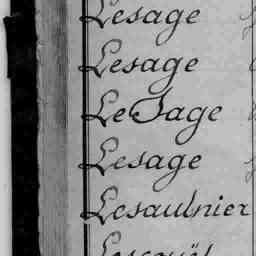 Lesage
Lesage
LeSage
Lesage
Lesaulnier